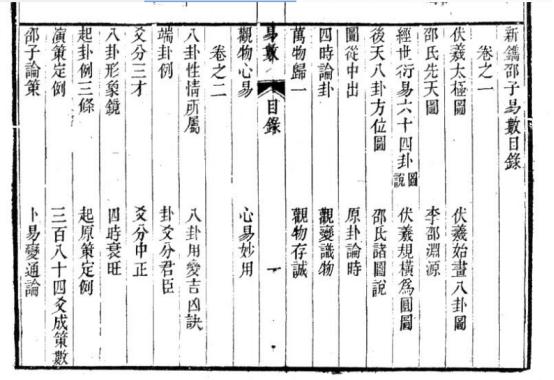 新鐫邵子易數目錄
卷之一
伏羲太極圖 伏羲始畫八卦圖
邵氏先天圖 李邵淵源
經世衍易六十四卦圖說 伏羲規橫為圓圖
後天八卦方位圖 邵氏諸圖說
圖從中出 原卦論時
四時論卦 觀變識物
萬物歸一 觀物存誠
易數 目錄 一
觀物心易 心易妙用
卷之二
八卦性情所屬 八卦用變吉凶訣
端卦例 卦爻分君臣
爻分三才 爻分中正
八卦形象鏡 四時衰旺
起卦例三條 起原策定例
演策定例 三百八十四爻成策數
邵子論策 卜易變通論